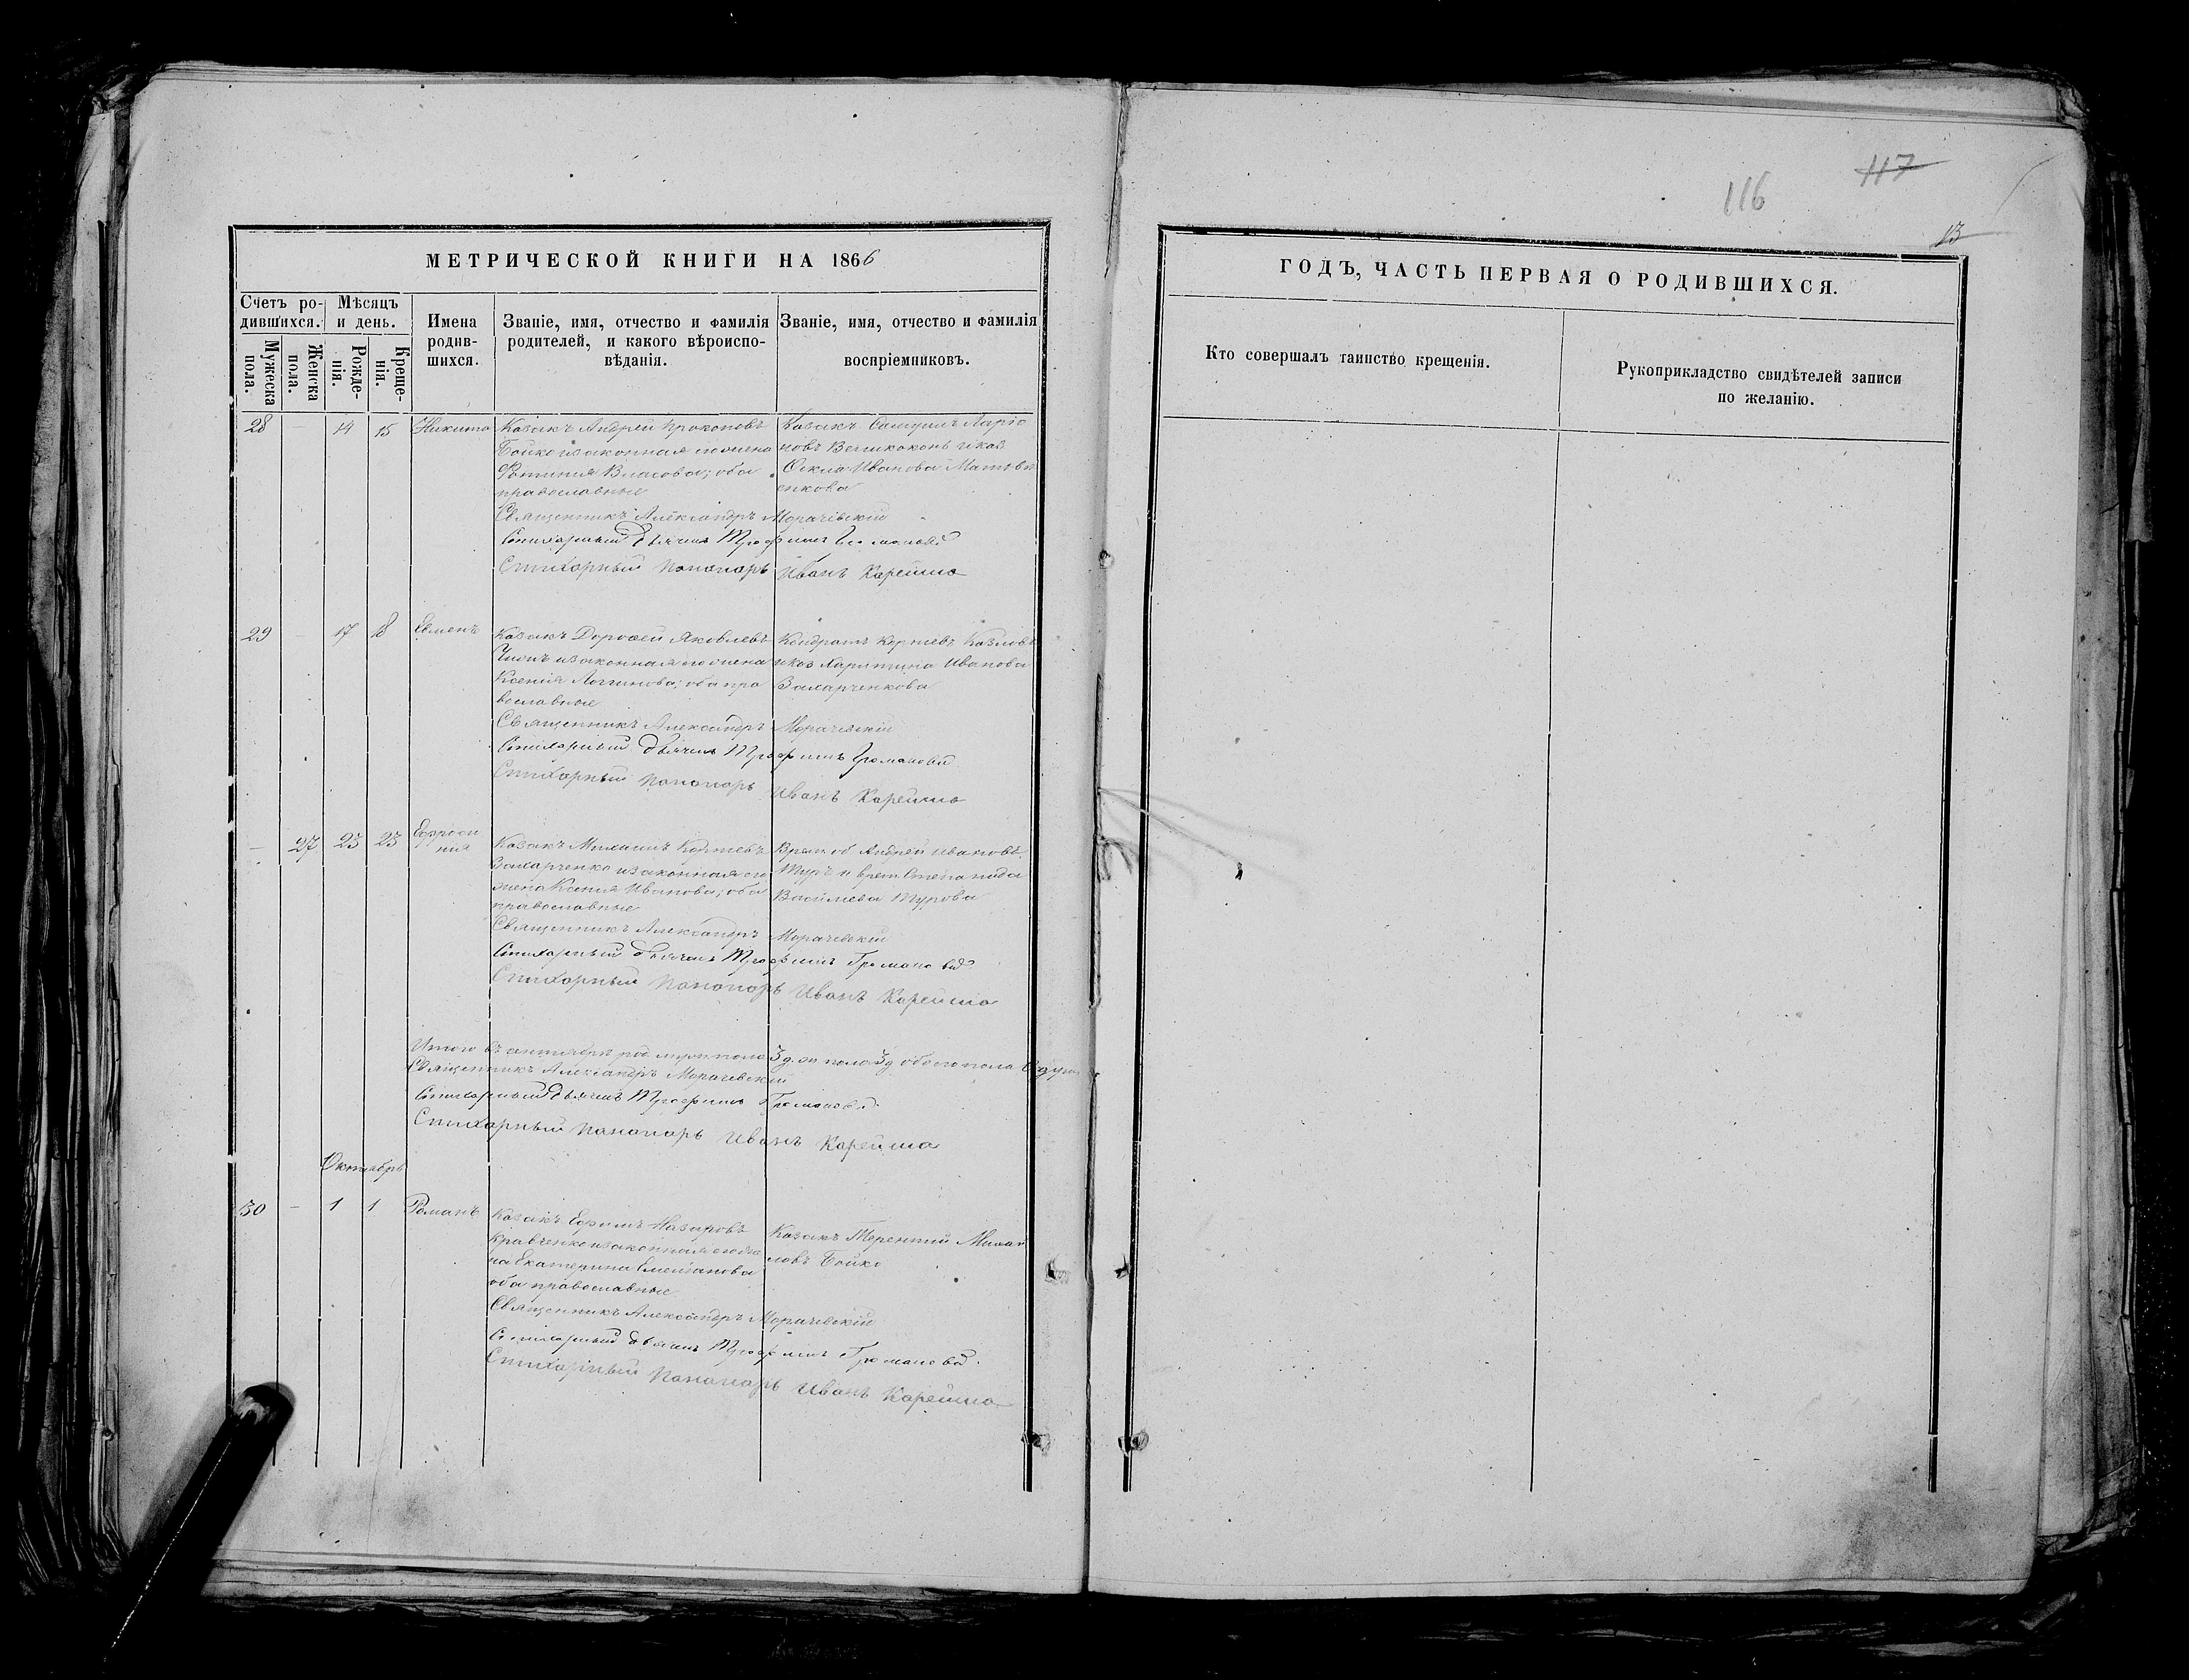 117
116
13
МЕТРИЧЕСКОЙ КНИГИ НА 1866
ГОДЪ, ЧАСТЬ ПЕРВАЯ О РОДИВШИХСЯ.
Счетъ ро-
дившихся.
Мѣсяцъ
и день.
Мужеска
пола.
Женска
пола.
Рожде-
нія.
Креще-
нія.
Имена
родив-
шихся.
Званіе, имя, отчество и фамилія
родителей, и какого вѣроиспо-
вѣданія.
Званіе, имя, отчество и фамилія
воспріемниковъ.
Кто совершалъ таинство крещенія.
Рукоприкладство свидѣтелей записи
по желанію.
28 14 15 Никита
Козакъ Андрей Прокоповъ
Бойко и законная его жена
Фотинія Власова; оба
православные
Козакъ Самуилъ Ларіо
новъ Великоконь и коз
Ѳекла Иванова Матвѣ
енкова
Священникъ Александръ Морачевскій
Стихарный дьячекъ Трофимъ Громаковъ
Стихарный Пономарь Иванъ Карейша
29 - 17 18 Евменъ
Козакъ Дороѳей Яковлевъ
и законная его жена
Ксенія Логинова; оба пра
вославные
Кондратъ Корнѣевъ Козловъ
и коз Харитина Иванова
Захарченкова
Священникъ Александръ Морачевскій
Стихарный дьячекъ Трофимъ Громаковъ
Стихарный Пономарь Иванъ Карейша
- 27 23 23 Ефроси
нія
Козакъ Михаилъ Корнѣевъ
Захарченко и законная его
жена Ксенія Иванова; оба
православные
Врем. об Андрей Ивановъ
Туръ и врем. Степанида
Васильева Турова
Священникъ Александръ Морачевскій
Стихарный дьячекъ Трофимъ Громаковъ
Стихарный Пономарь Иванъ Карейша
Итого въ сентябрѣ род. муж. пола 3 д. ж пола 3 д обоего пола 6 душъ
Священникъ Александръ Морачевскій
Стихарный дьячекъ Трофимъ Громаковъ
Стихарный Пономарь Иванъ Карейша
Октябрь
30 - 1 1 Романъ
Козакъ Ефимъ Назаровъ
Кравченко и законная его же
на Екатерина Емельянова
оба православные
Козакъ Терентій Михай
ловъ Бойко
Священникъ Александръ Морачевскій
Стихарный дьячекъ Трофимъ Громаковъ
Стихарный Пономарь Иванъ Карейша